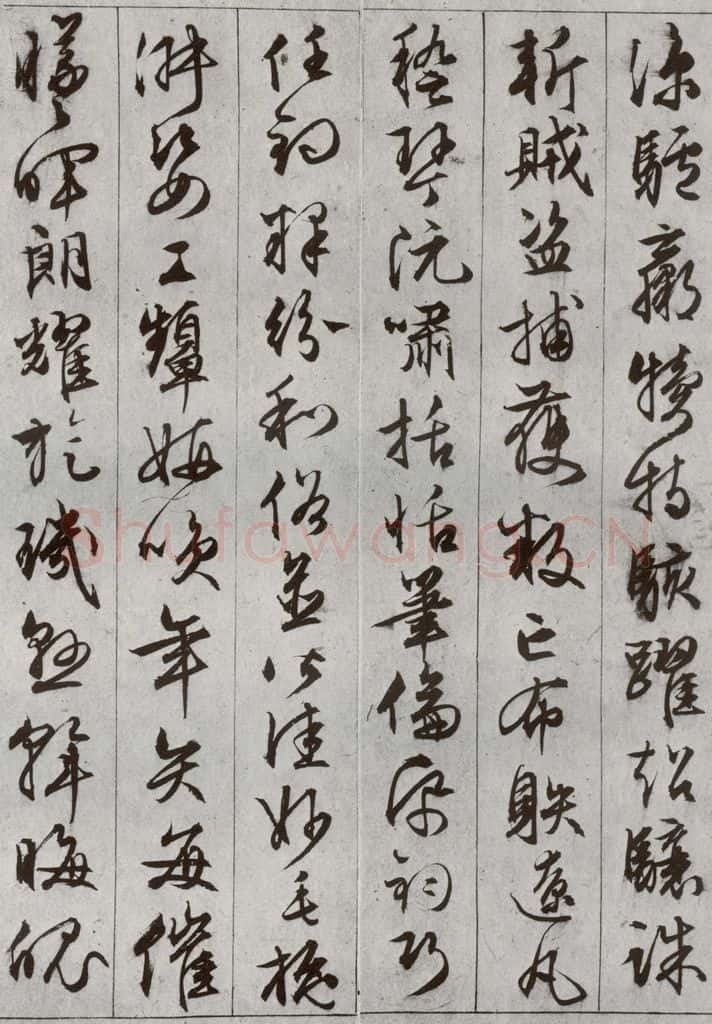 涼驢驘犢特駭躍超驤誅
斬賊盜捕獲叛亡布射遼丸
嵇琴阮嘯括恬筆倫帋鈞巧
任釣釋紛利俗並皆佳妙毛施
淑姿工顰妍咲年矢每催
曦暉朗耀旋璣懸斡晦魄
Shufawang.CN